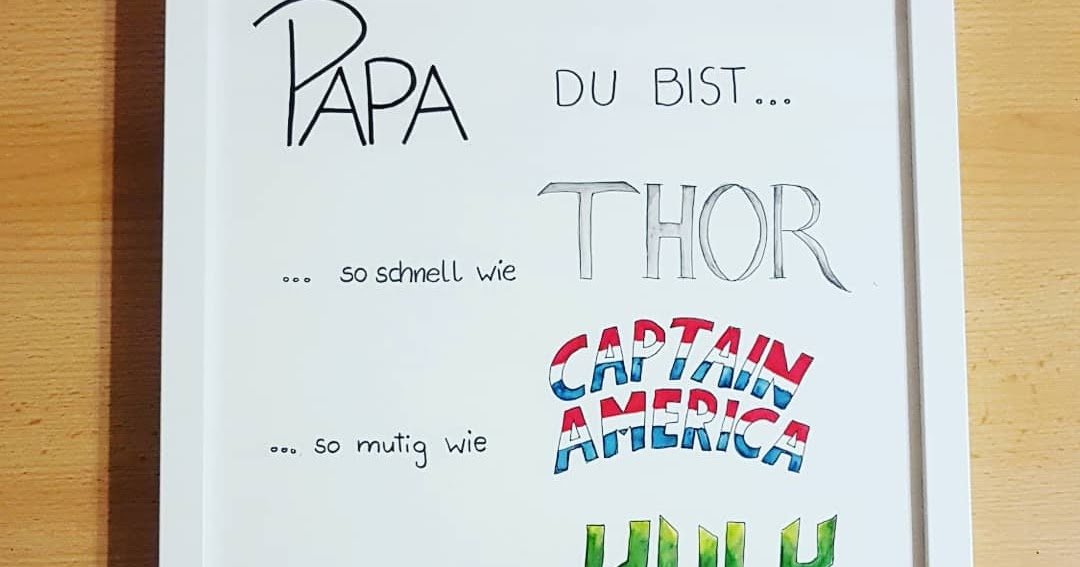 PAPA DU BIST...
... so schnell wie THOR
CAPTAIN
... so mutig wie AMERICA
HULK